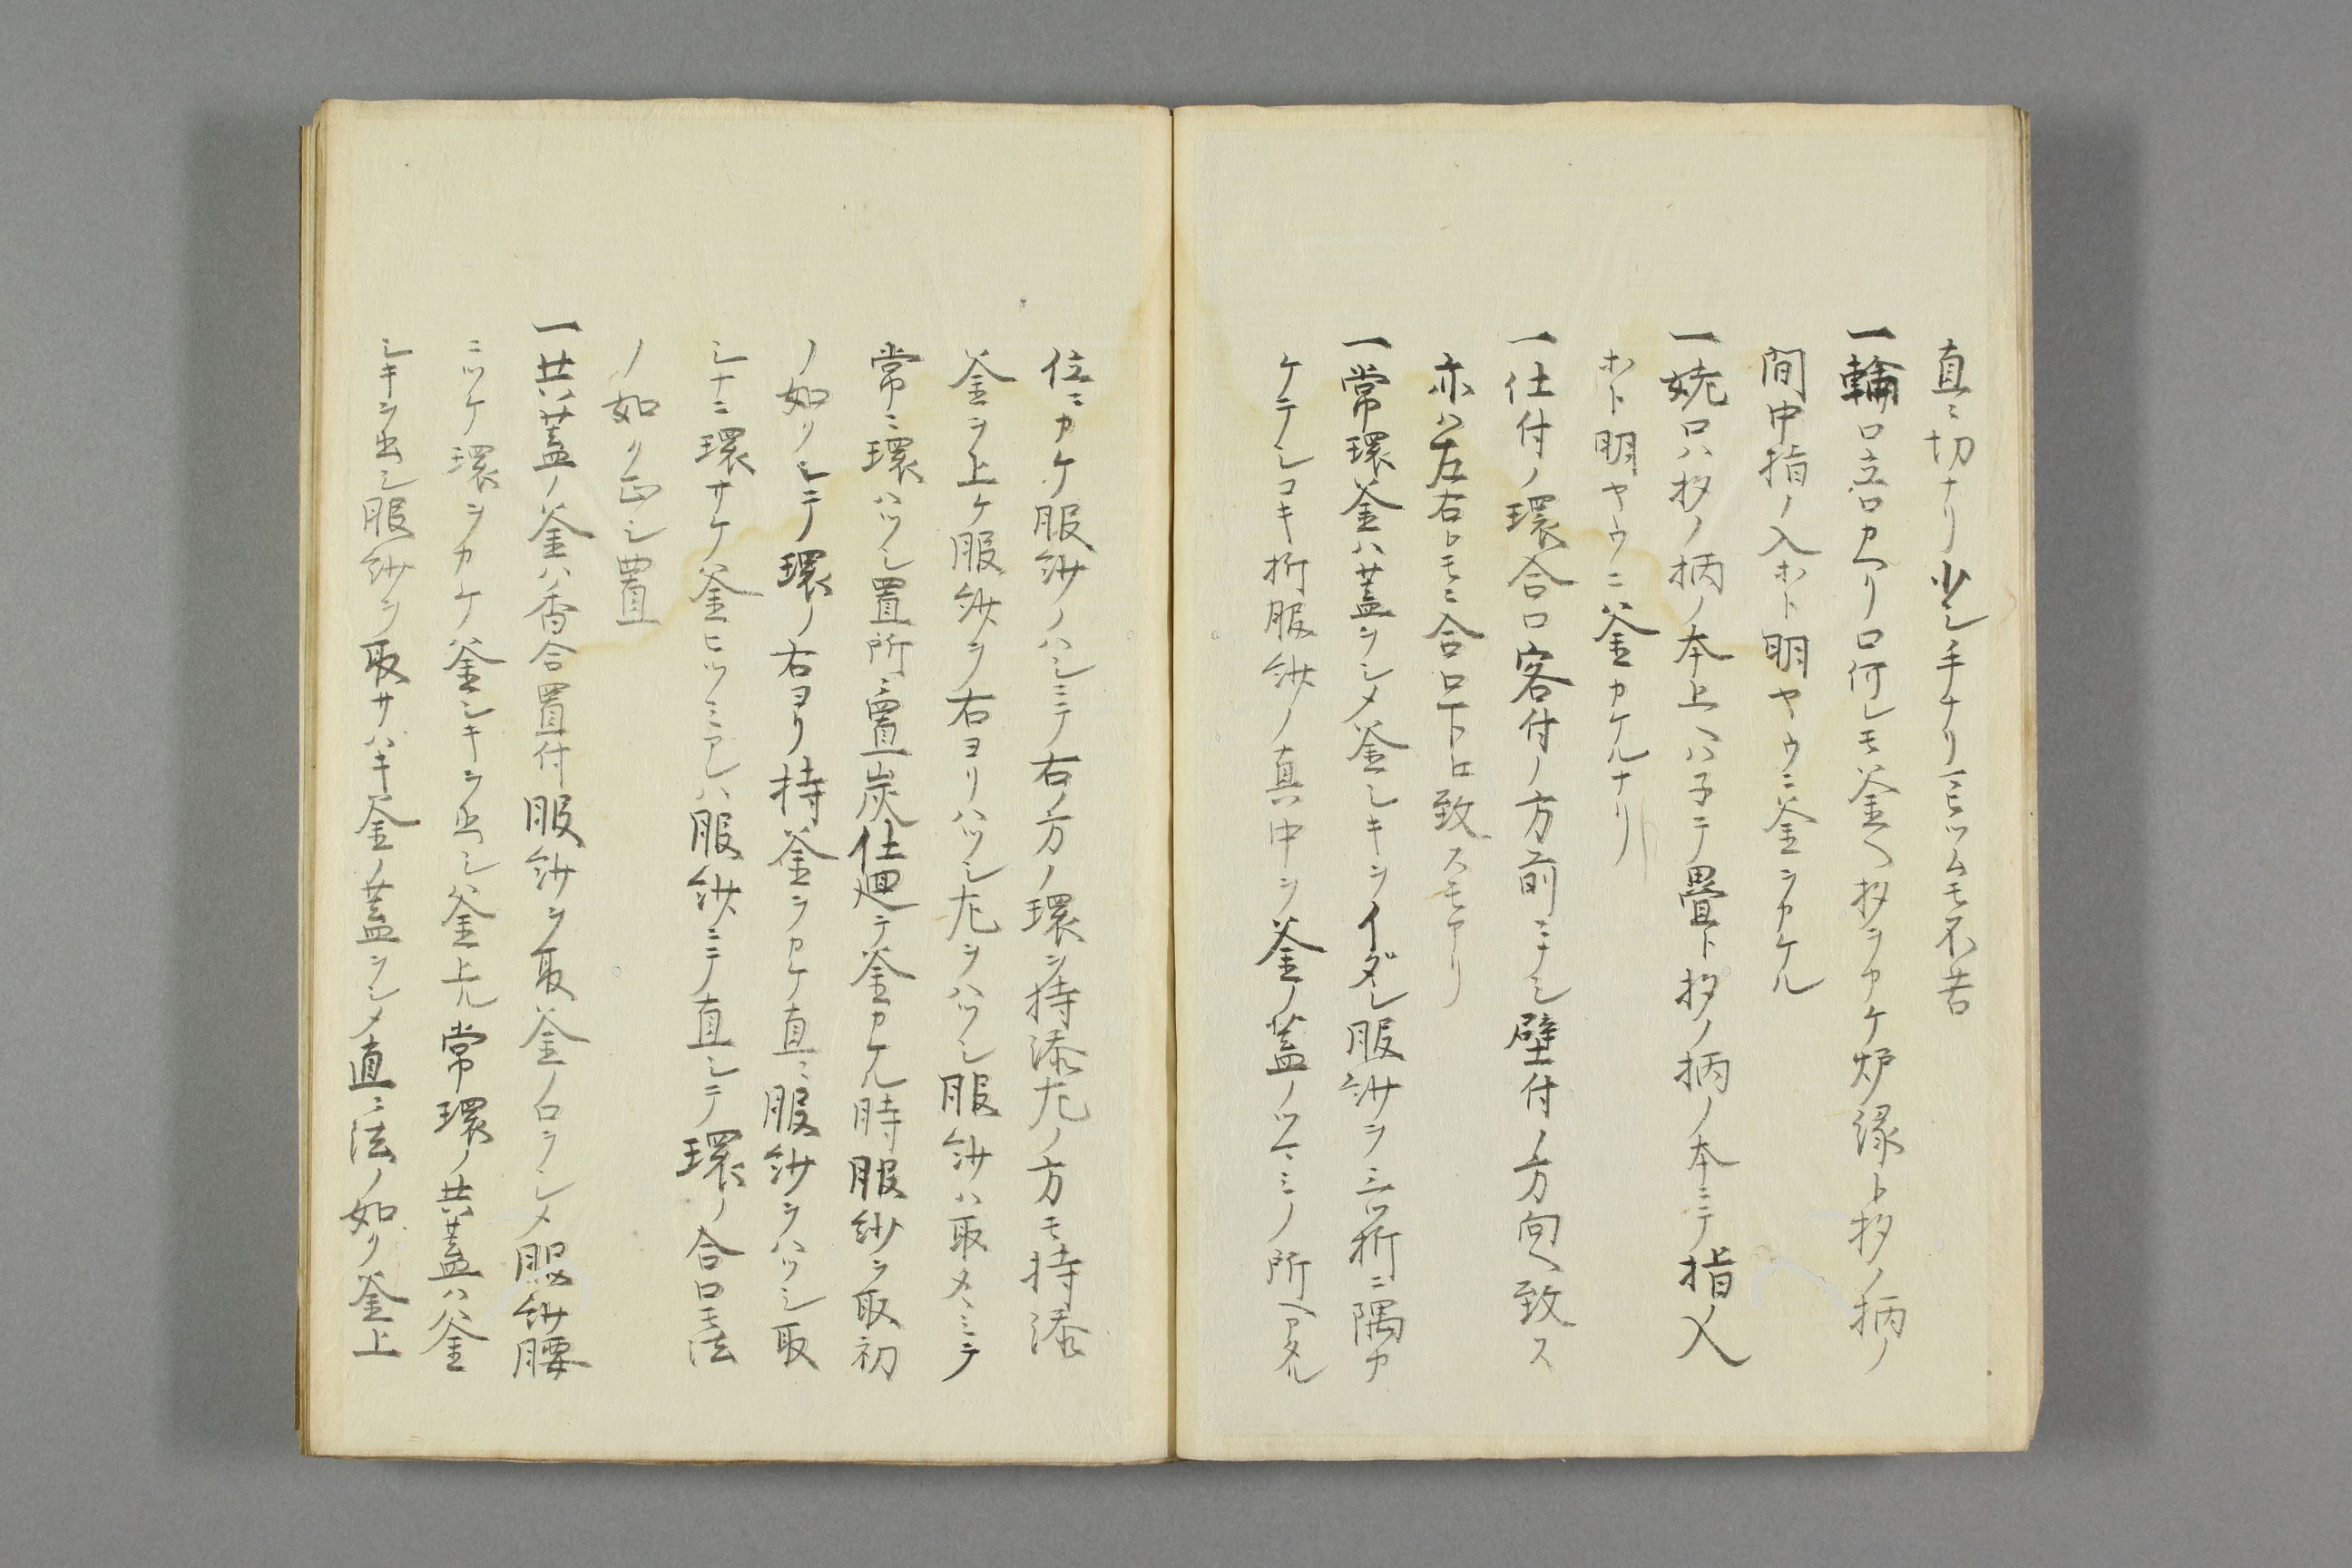 直ニ切ナリ少シ手ナリニヒツムモ不苦
一輪口立口カヘリ口何レモ釜ヘ杓ヲカケ炉縁ト杓ノ柄ノ
間中指ノ入ホト明ヤウニ釜ヲカケル
一姥口ハ杓ノ柄ノ本上ヘハ子テ畳ト杓ノ柄ノ本ニテ指ノ入
ホト明ヤウニ釜カケルナリ
一仕付ノ環合口客付ノ方前ニナシ壁付ノ方向ヘ致ス
亦ハ左右トモニ合口下ト致スモアリ
一常環釜ハ蓋ヲシメ釜シキヲイダシ服紗ヲ三ツ折ニ隅カ
ケテシコキ折服紗ノ真中ヲ釜ノ蓋ノツマミノ所ヘアタル
位ニカケ服紗ノハシニテ右ノ方ノ環ヲ持添左ノ方モ持添
釜ヲ上ケ服紗ヲ右ヨリハツシ左ヲハツシ服紗ハ取タヽミテ
常ニ環ハツシ置所ニ置炭仕廻テ釜カケル時服紗ヲ取初
ノ如クシテ環ノ右ヨリ持釜ヲカケ直ニ服紗ヲハツシ取
シナニ環サケ釜ヒツミアレハ服紗ニテ直シテ環ノ合口モ法
ノ如ク正シ置
一共蓋ノ釜ハ香合置付服紗ヲ取釜ノ口ヲシメ服紗腰
ニツケ環ヲカケ釜シキヲ出シ釜上ル常環ノ共蓋ハ釜
シキヲ出シ服紗ヲ取サハキ釜ノ蓋ヲシメ直ニ法ノ如ク釜上